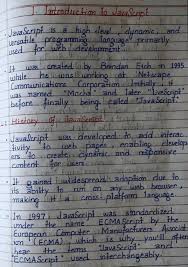 Introduction to JavaScript
JavaScript is a high level, dynamic, and
versatile programming language primarily
used for web development.
It was created by Brendan Eich in 1995
while he was working at Netscape
Communications Corporation. Initially, it
was named "Mocha" and later "LiveScript"
before finally being called "JavaScript".
History of JavaScript
JavaScript was developed to add interac
tivity to web pages, enabling develop
ers to create dynamic and responsive
content for users.
It gained widespread adoption due to
its ability to run on any web browser,
making it a cross-platform language.
In 1997, JavaScript was standardized
under the name ECMAScript by the
European Computer Manufacturers Associat
ion (ECMA), which is why you'll often
hear the terms "JavaScript" and
"ECMAScript" used interchangeably.